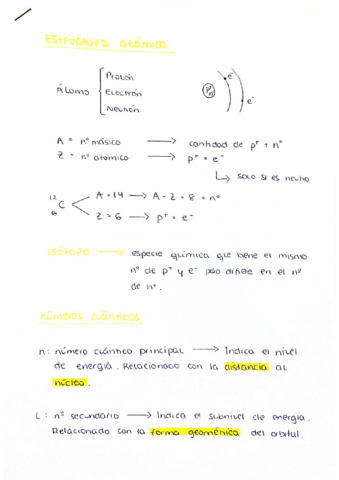 Estructura atómica
Átomo
Protón
Electrón
Neutrón
p⁺
n
e⁻
e⁻
A = nº másico → cantidad de p⁺ + nº
Z = nº atómico → p⁺ = e⁻
↳ solo si es neutro
¹²₆C
A = 14 → A - Z = 8 = nº
Z = 6 → p⁺ = e⁻
ISÓTOPO → especie química que tiene el mismo
nº de p⁺ y e⁻ pero difiere en el nº
de nº.
números cuánticos
n: número cuántico principal → Indica el nivel
de energía. Relacionado con la distancia al
núcleo.
L: nº secundario → Indica el subnivel de energía.
Relacionado con la forma geométrica del orbital.